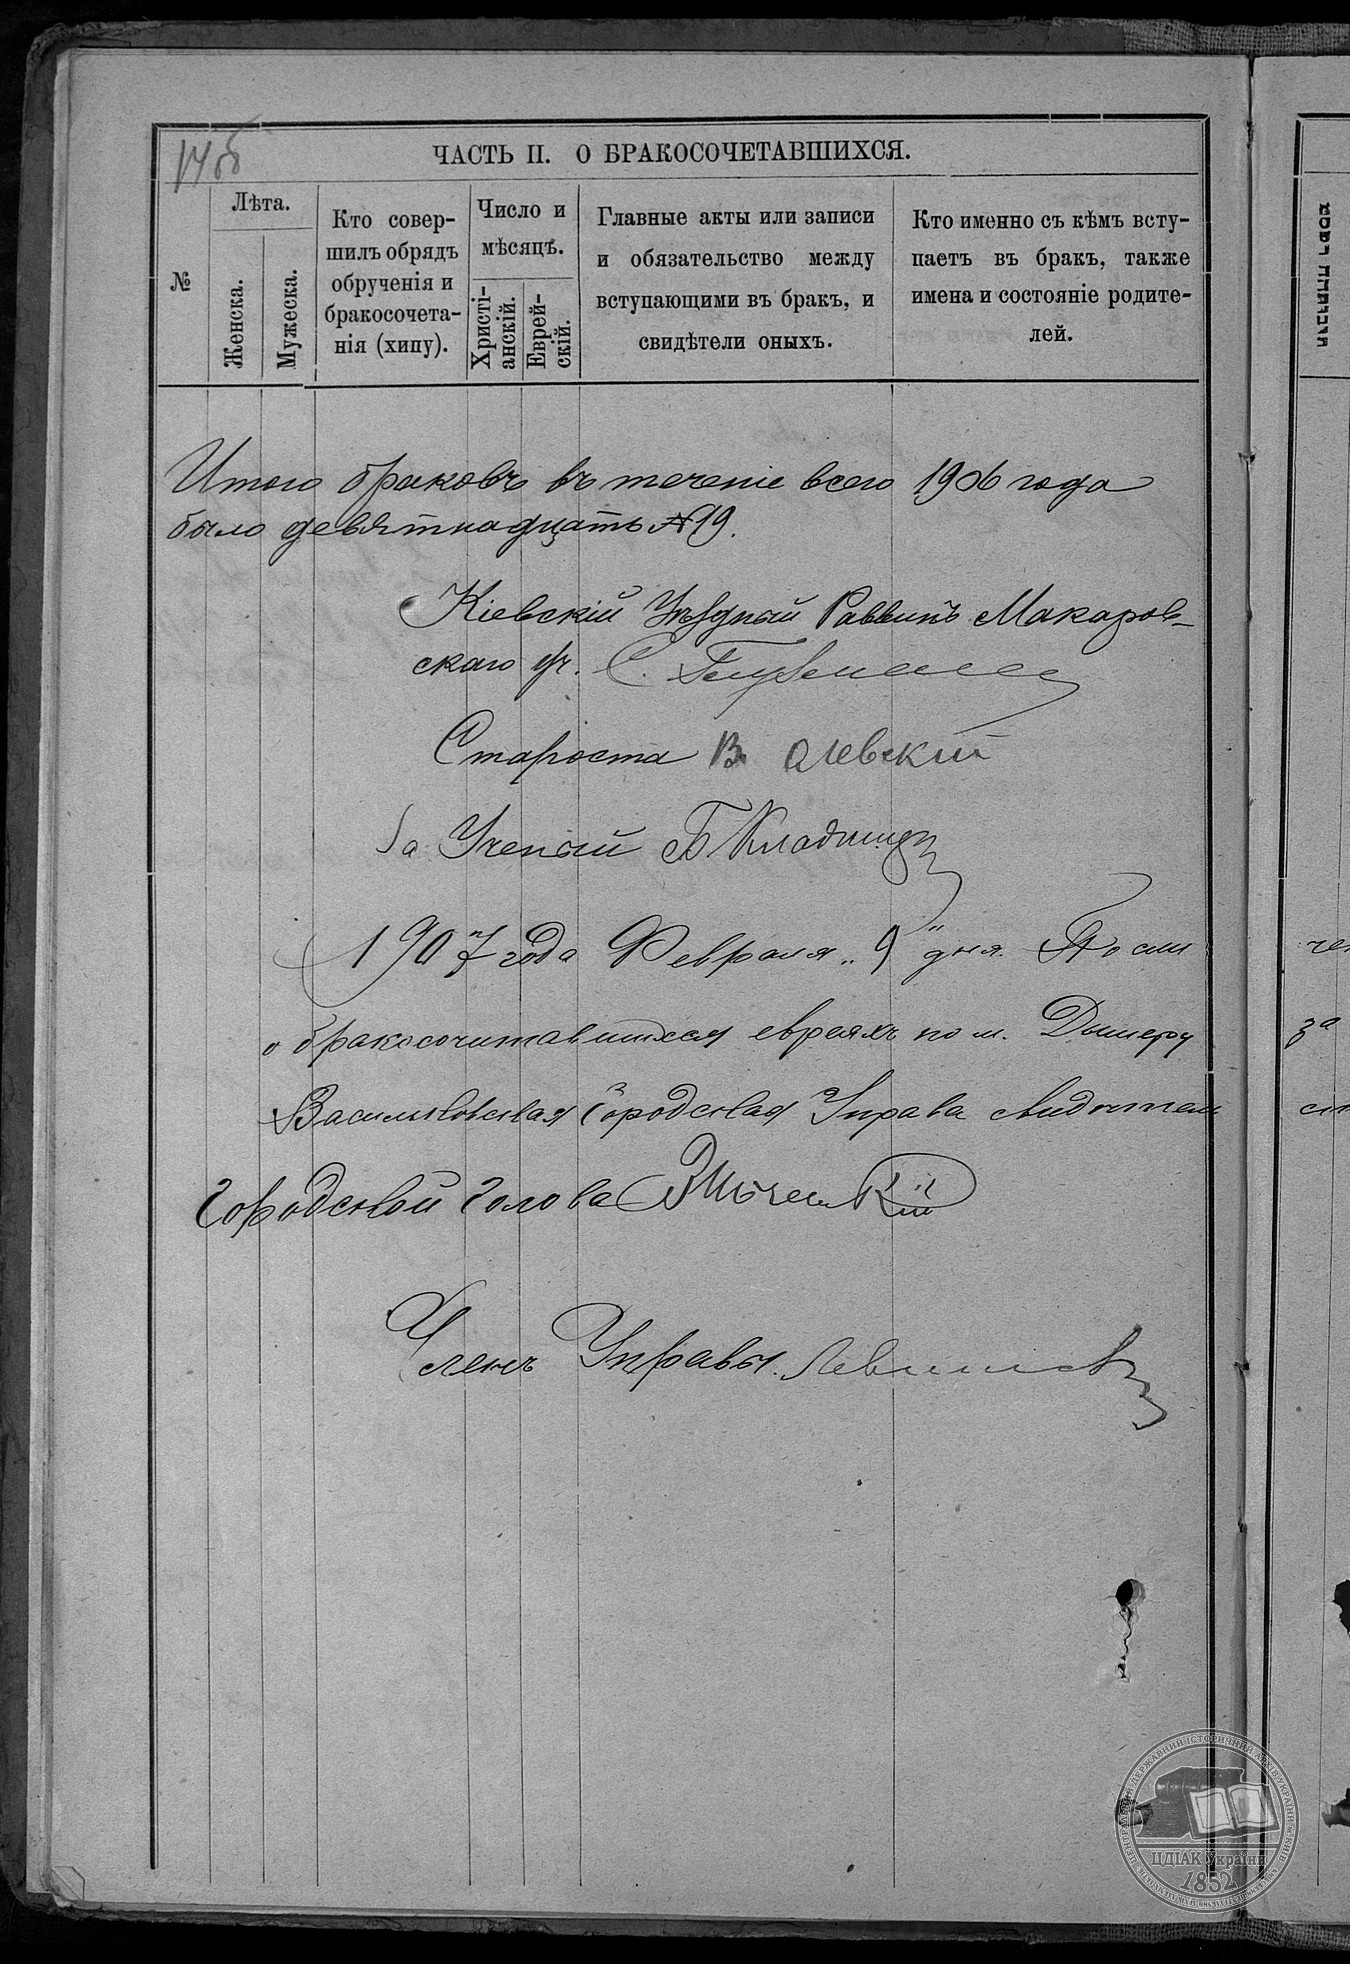 ЧАСТЬ II. О БРАКОСОЧЕТАВШИХСЯ.
№
Лѣта.
Женска.
Мужеска.
Кто совер-
шилъ обрядъ
обрученія и
бракосочета-
нія (хипу).
Число и
мѣсяцъ.
Христі-
анскій.
Еврей-
скій.
Главные акты или записи
и обязательство между
вступающими въ бракъ, и
свидѣтели оныхъ.
Кто именно съ кѣмъ всту-
паетъ въ бракъ, также
имена и состояніе родите-
лей.
Итого браковъ въ теченіе всего 1906 года
было девятнадцать №19.
Кіевскій Уѣздный Раввинъ Макаров-
скаго уч. С.
Староста В. Олевскій
За Ученый Б
1907 года Февраля „9" дня.
о бракосочитавшихся евреяхъ по м. Дымеру
за
Васильковская Городская Управа свидѣтель
Городской Голова
Членъ Управы.
ЦЕНТРАЛЬНИЙ ДЕРЖАВНИЙ ІСТОРИЧНИЙ АРХІВ УКРАЇНИ
ЦДІАК України
1852